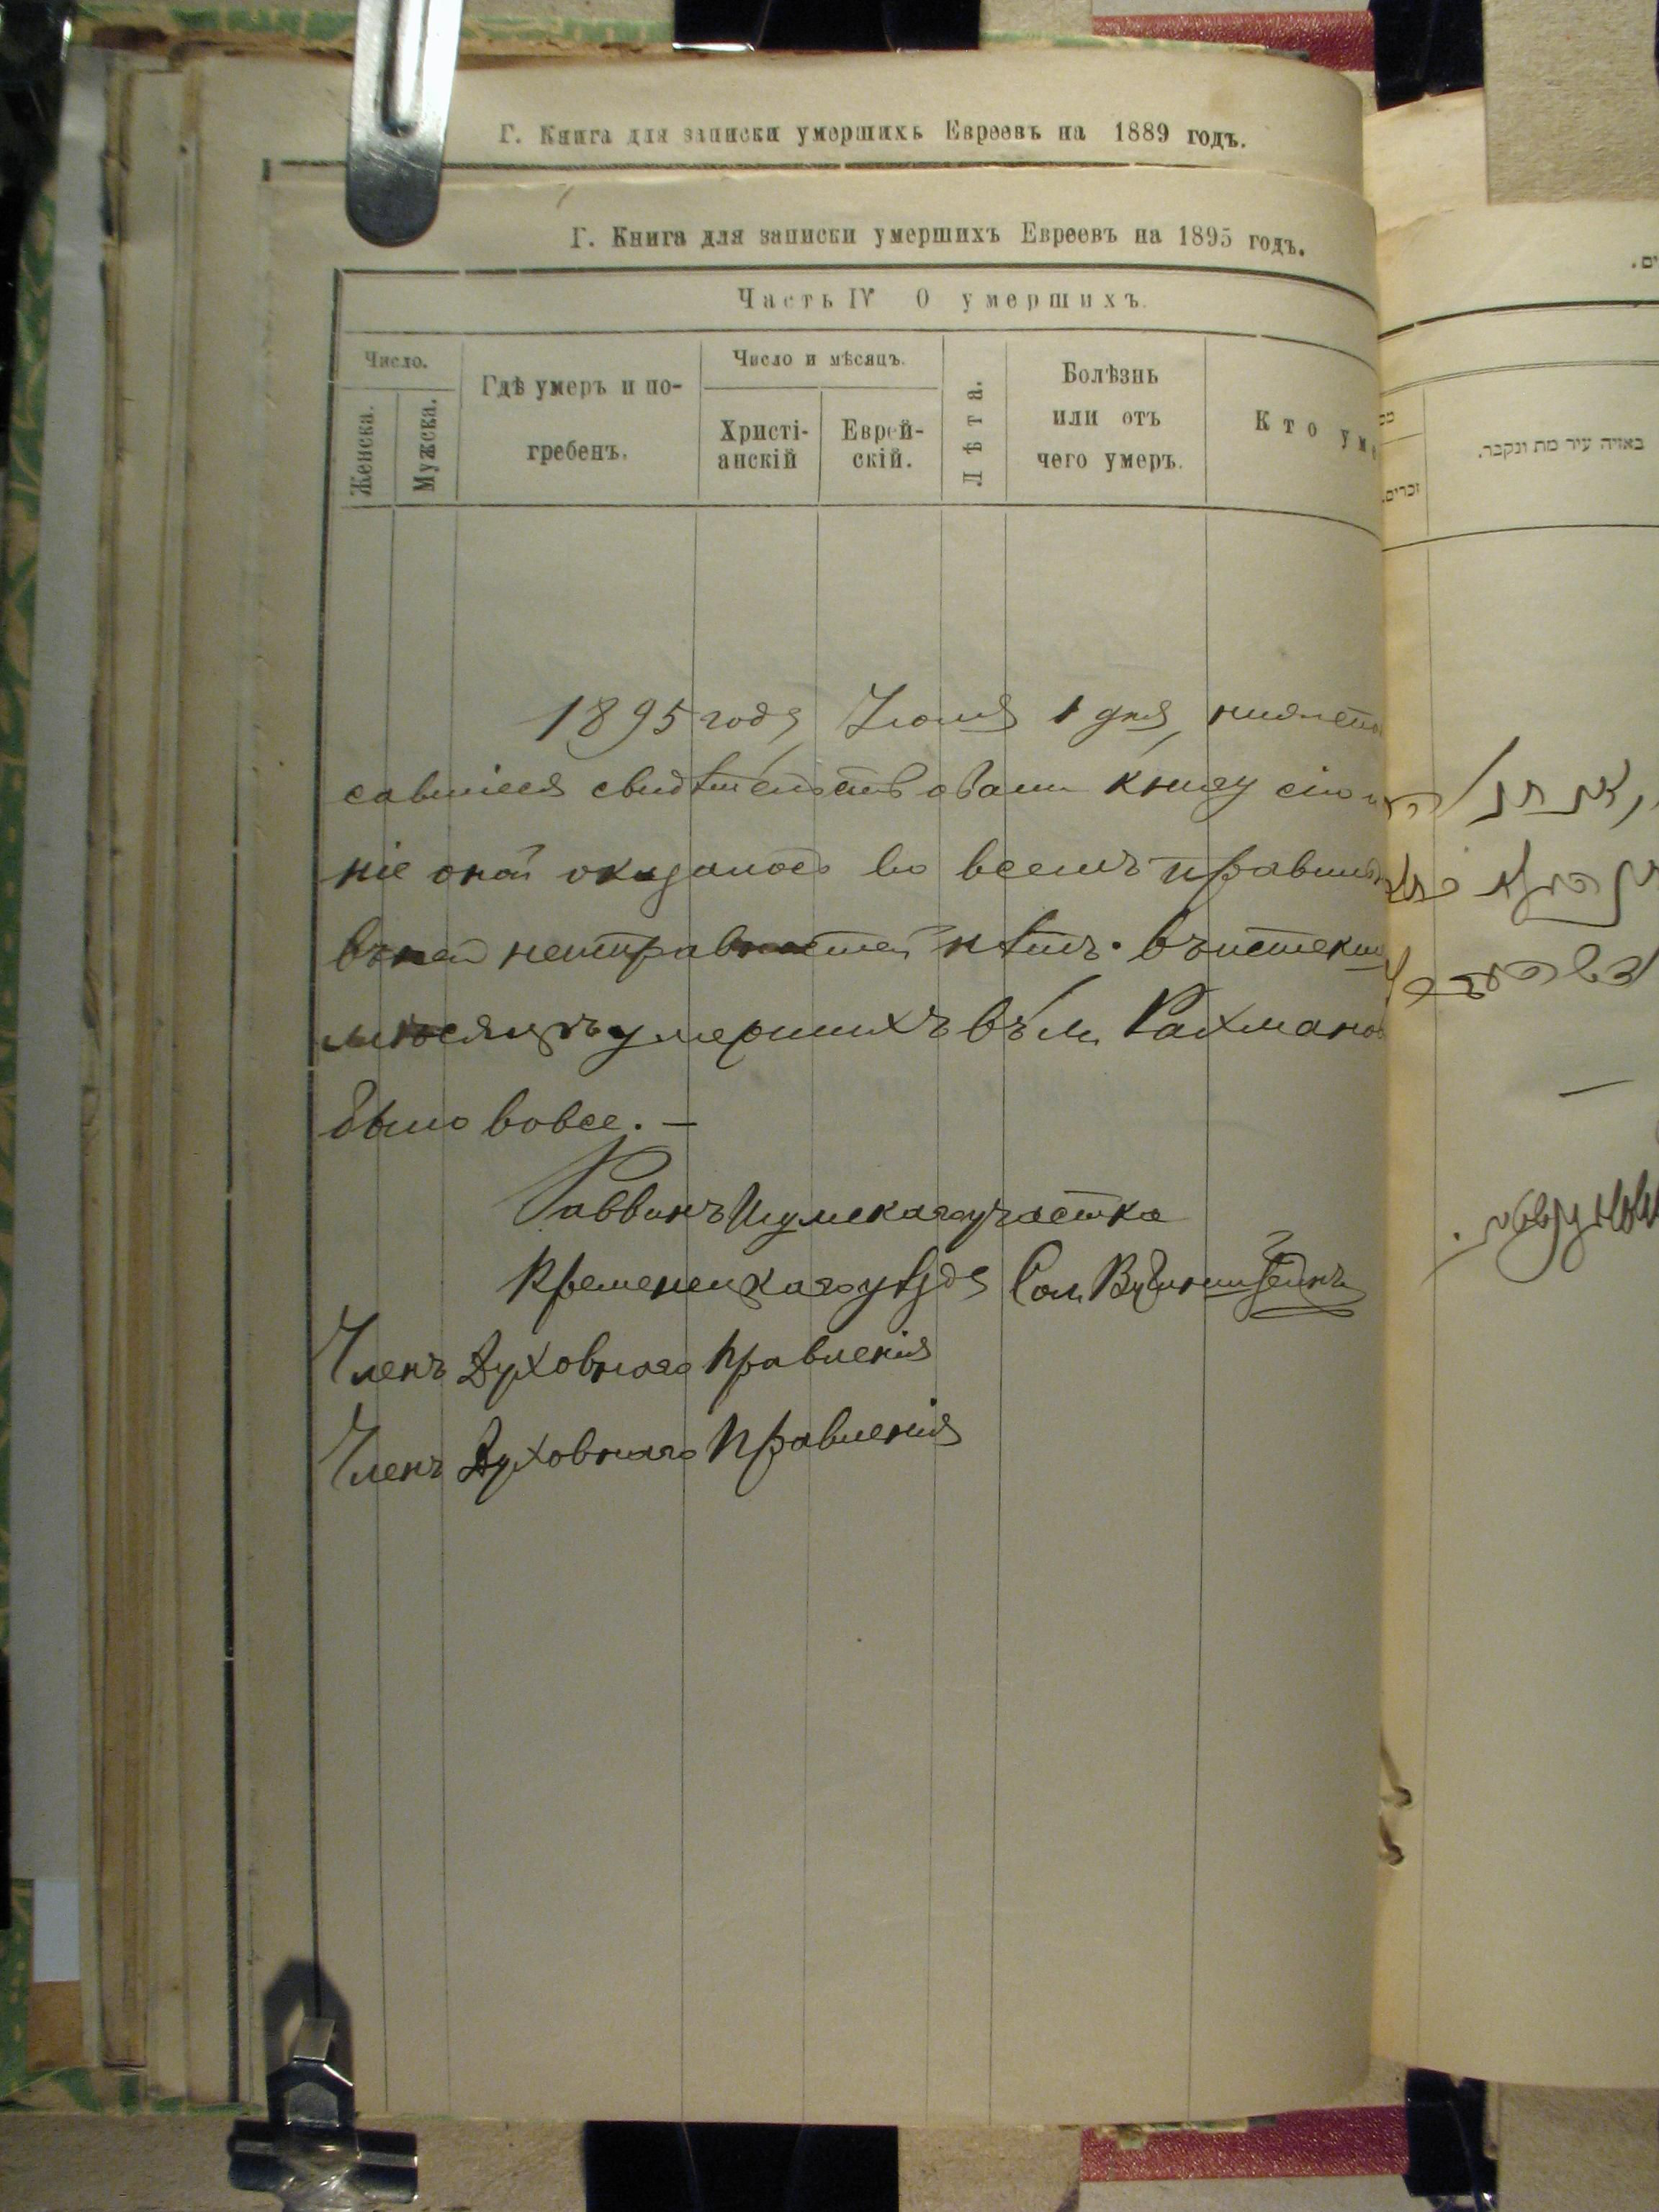 Г. Книга для записки умершихъ Евреевъ на 1889 годъ.
Г. Книга для записки умершихъ Евреевъ на 1895 годъ.
Часть IV О умершихъ.
Число.
Женска.
Мужска.
Гдѣ умеръ и по-
гребенъ.
Число и мѣсяцъ.
Христі-
анскій
Еврей-
скій.
Лѣта.
Болѣзнь
или отъ
чего умеръ.
Кто уме
1895 года, 1 дня, нижепо
савшіеся свидѣтельствовали книгу сію и
ніе оной оказалось во всемъ правиль
въ ней неисправностей нѣтъ. въ истекш
мѣсяцѣ умершихъ въ м. Рахманов
было вовсе. —
Раввинъ Шумскаго участка
Кременецкаго уѣзда Сол.
Членъ Духовнаго Правленія
Членъ Духовнаго Правленія
ים.
זכרים.
באיזה עיר מת ונקבר.